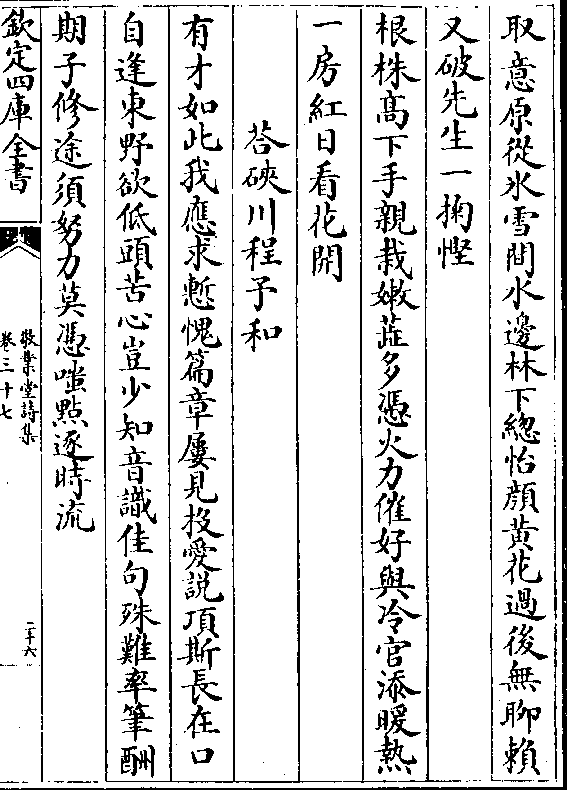 取意原從氷雪間水邊林下緫怡顔黄花過後無聊賴
又破先生一掬慳
根株髙下手親栽嫩蕋多憑火力催好與冷官添暖熱
一房紅日看花開
荅硤川程予和
有才如此我應求慙愧篇章屢見投愛説項斯長在口
自逢東野欲低頭苦心豈少知音識佳句殊難率筆酬
期子修途須努力莫憑嗤點逐時流
欽定四庫全書
敬業堂詩集
卷三十七
二十六